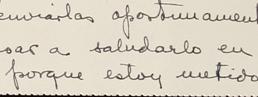 enviarlas oportunament
sar a saludarlo en
porque estoy metido